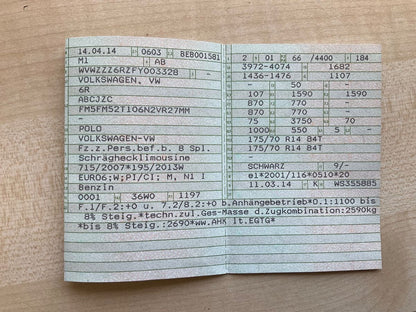 14.04.14 0603 BEB001581
M1 AB
WVWZZZ6RZFY003328 -
VOLKSWAGEN, VW
6R
ABCJZC
FM5FM52T106N2VR27MM
-
POLO
VOLKSWAGEN-VW
Fz.z.Pers.bef.b. 8 Spl.
Schräghecklimousine
715/2007*195/2013W
EURO6;W;PI/CI; M, N1 I
Benzin
0001 36W0 1197
2 01 66 /4400 184
3972-4074 1682
1436-1476 1107
- 50 -
107 1590 1590
870 770 -
870 770 -
75 3750 70
1000 550 5 -
175/70 R14 84T
175/70 R14 84T
-
SCHWARZ 9/-
e1*2001/116*0510*20
11.03.14 K WS355885
F.1/F.2:+0 u. 7.2/8.2:+0 b.Anhängebetrieb*O.1:1100 bis
8% Steig.*techn.zul.Ges-Masse d.Zugkombination:2590kg
*bis 8% Steig.:2690*ww.AHK lt.EGTG*